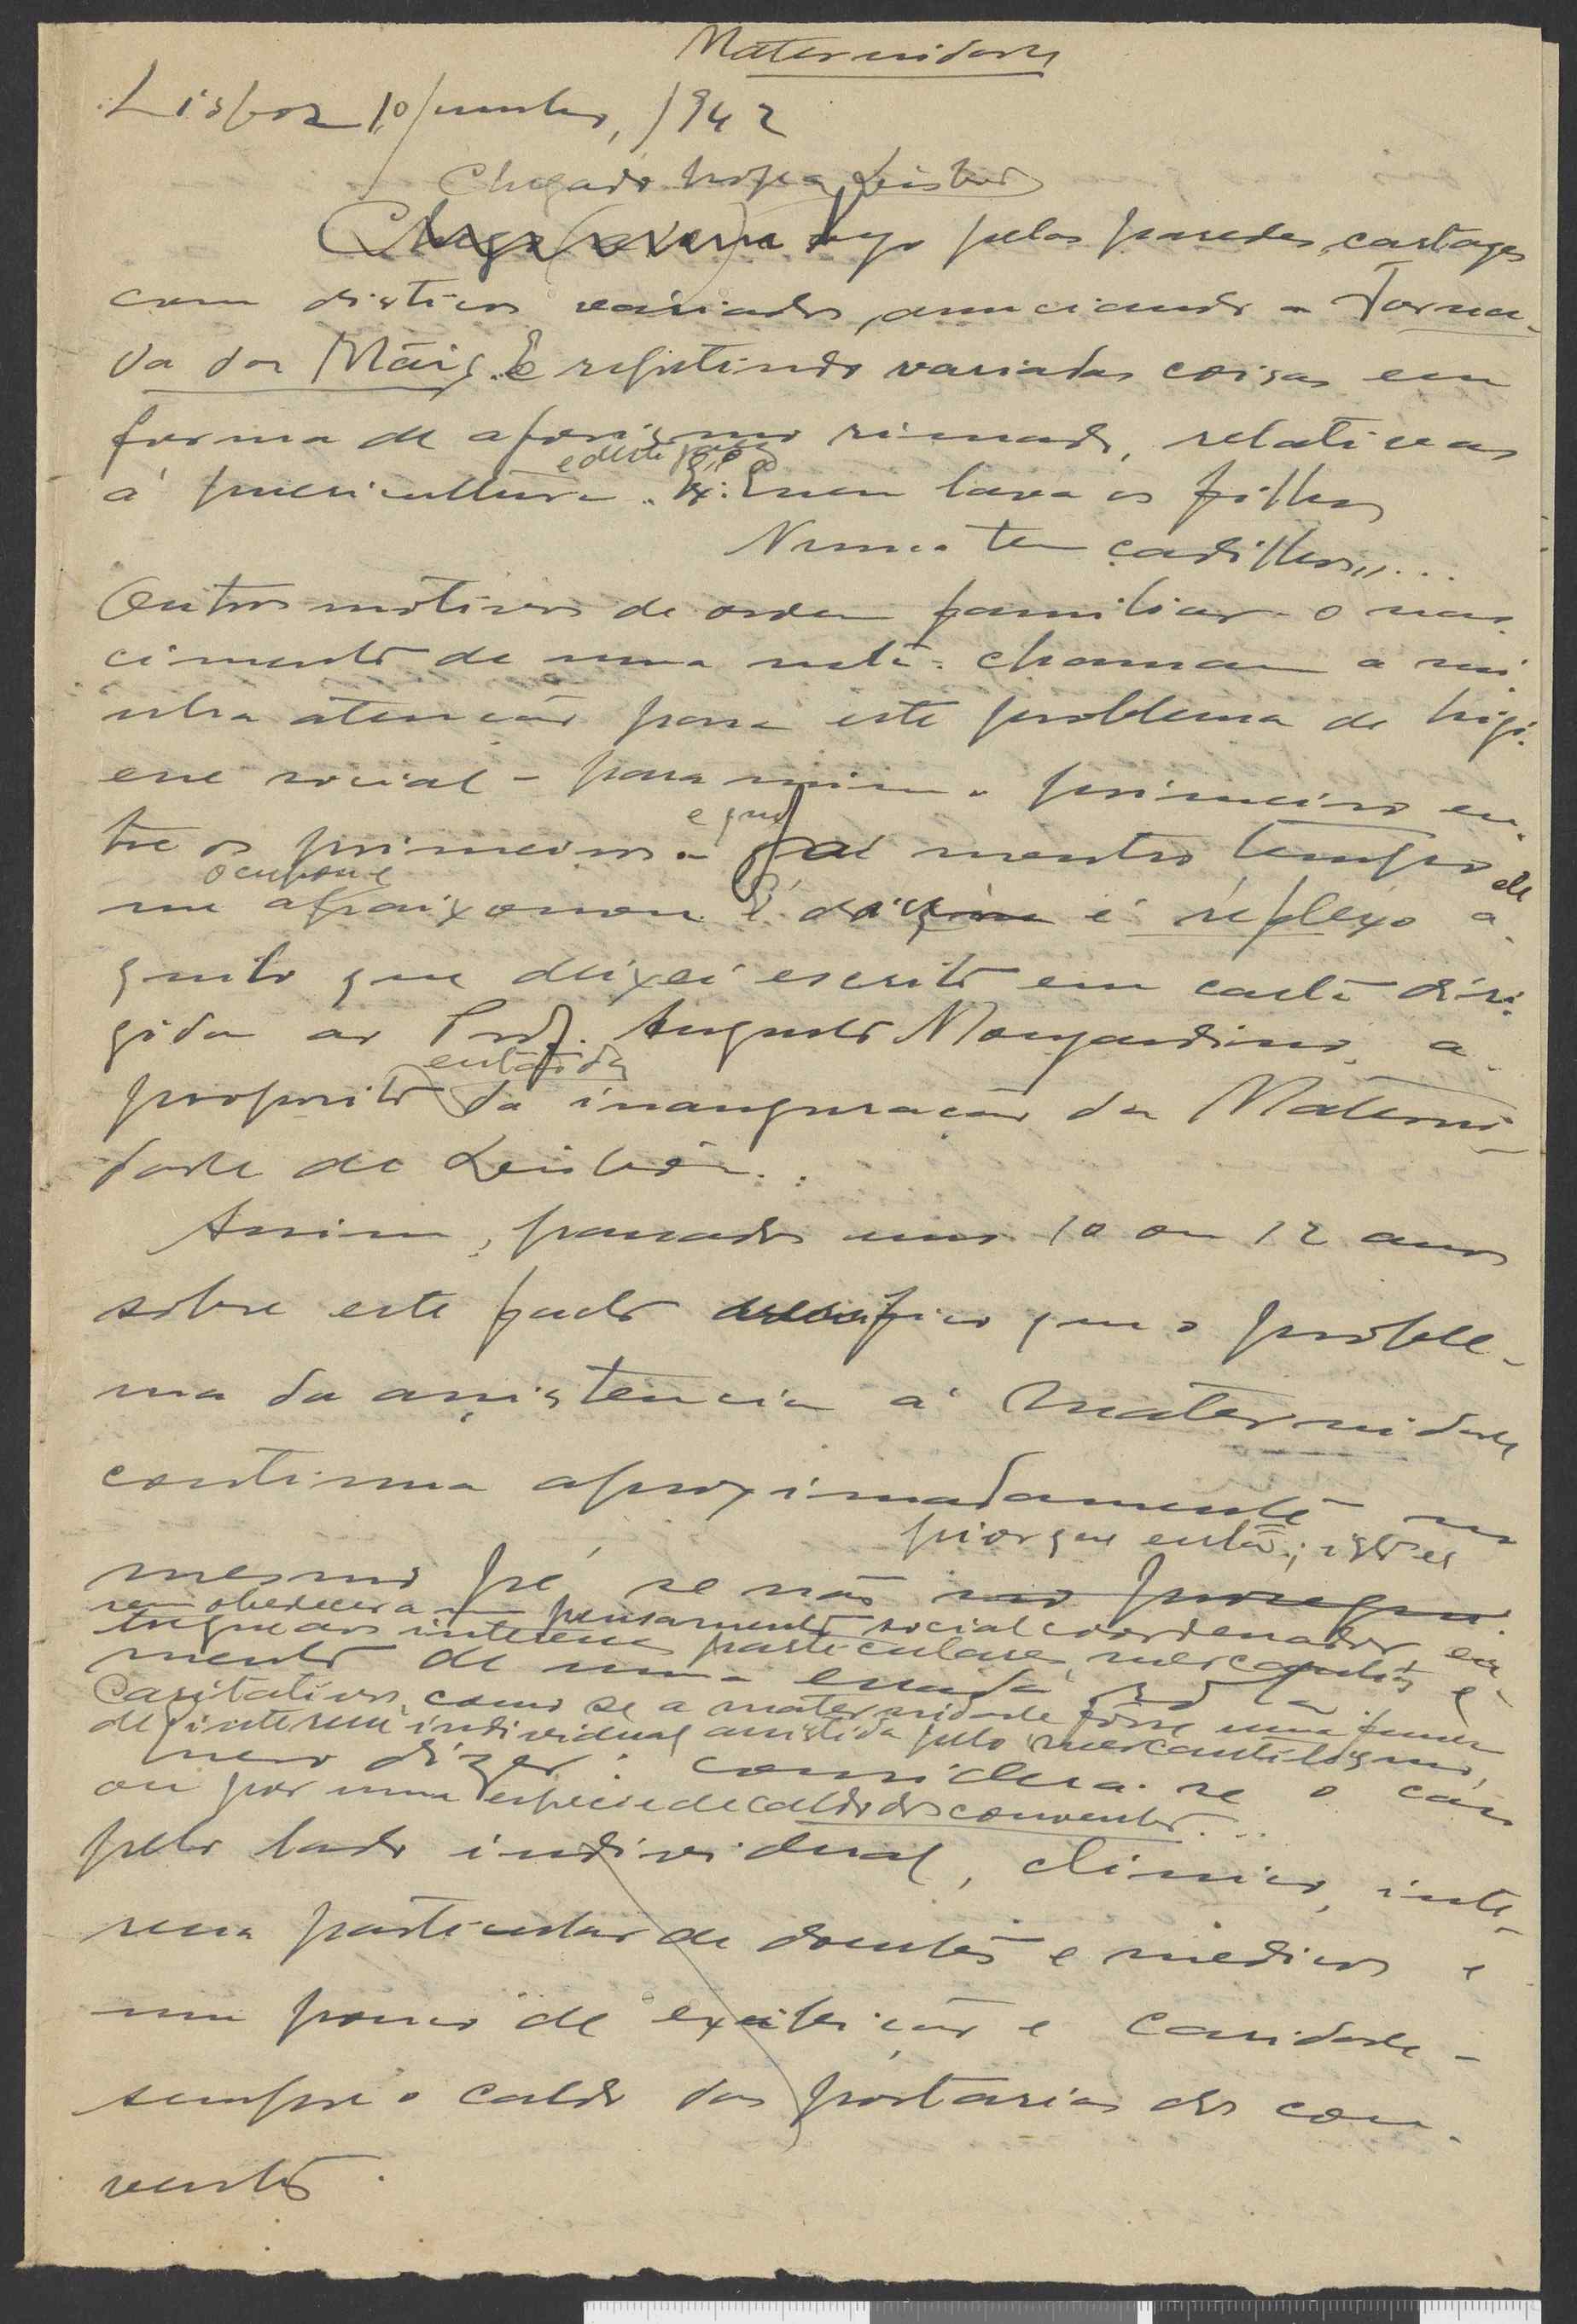 Maternidade
Lisboa 10/junho, 1942
Chegado hoje a Lisboa
vejo pelas paredes, cartazes
com disticos variados, anunciando a Jorna-
da das Mãis. E repetindo variadas coisas em
forma de aforismo rimado, relativas
e deste jaez
á puericultura. Ex: Quem lava os filhos
Nunca tem cadilhos,,...
Outros motivos de ordem familiar - o nas-
cimento de uma neta - chamam a mi-
nha atenção para este problema de higi-
ene social - para mim o primeiro en-
tre os primeiros - e que já ha muito tempo
ocupou e
me apaixonou. É é réflexo da-
quilo que deixei escrito em carta diri-
gida ao Prof. Augusto Monjardino, a
então
proposito da inauguração da Materni-
dade de Lisboa..
Assim, passados uns 10 ou 12 anos
sobre este facto verifico que o proble-
ma da assistencia á Maternidade
continua aproximadamente no
pior que então; isto é,
mesmo pé, se não no prossegui-
sem obedecer a um pensamento social coordenador, en-
tregue aos interesses particulares, mercantis e
mento de uma errada
caritativos, como se a maternidade fosse uma função
de interesse individual assistida pelo mercantilismo,
quero dizer: considera-se o caso
ou por uma especie de caldo dos conventos...
pelo lado individual, clinico, inte-
resse particular de doentes e medicos e
um pouco de exibição e caridade -
sempre o caldo das portarias dos con-
ventos.